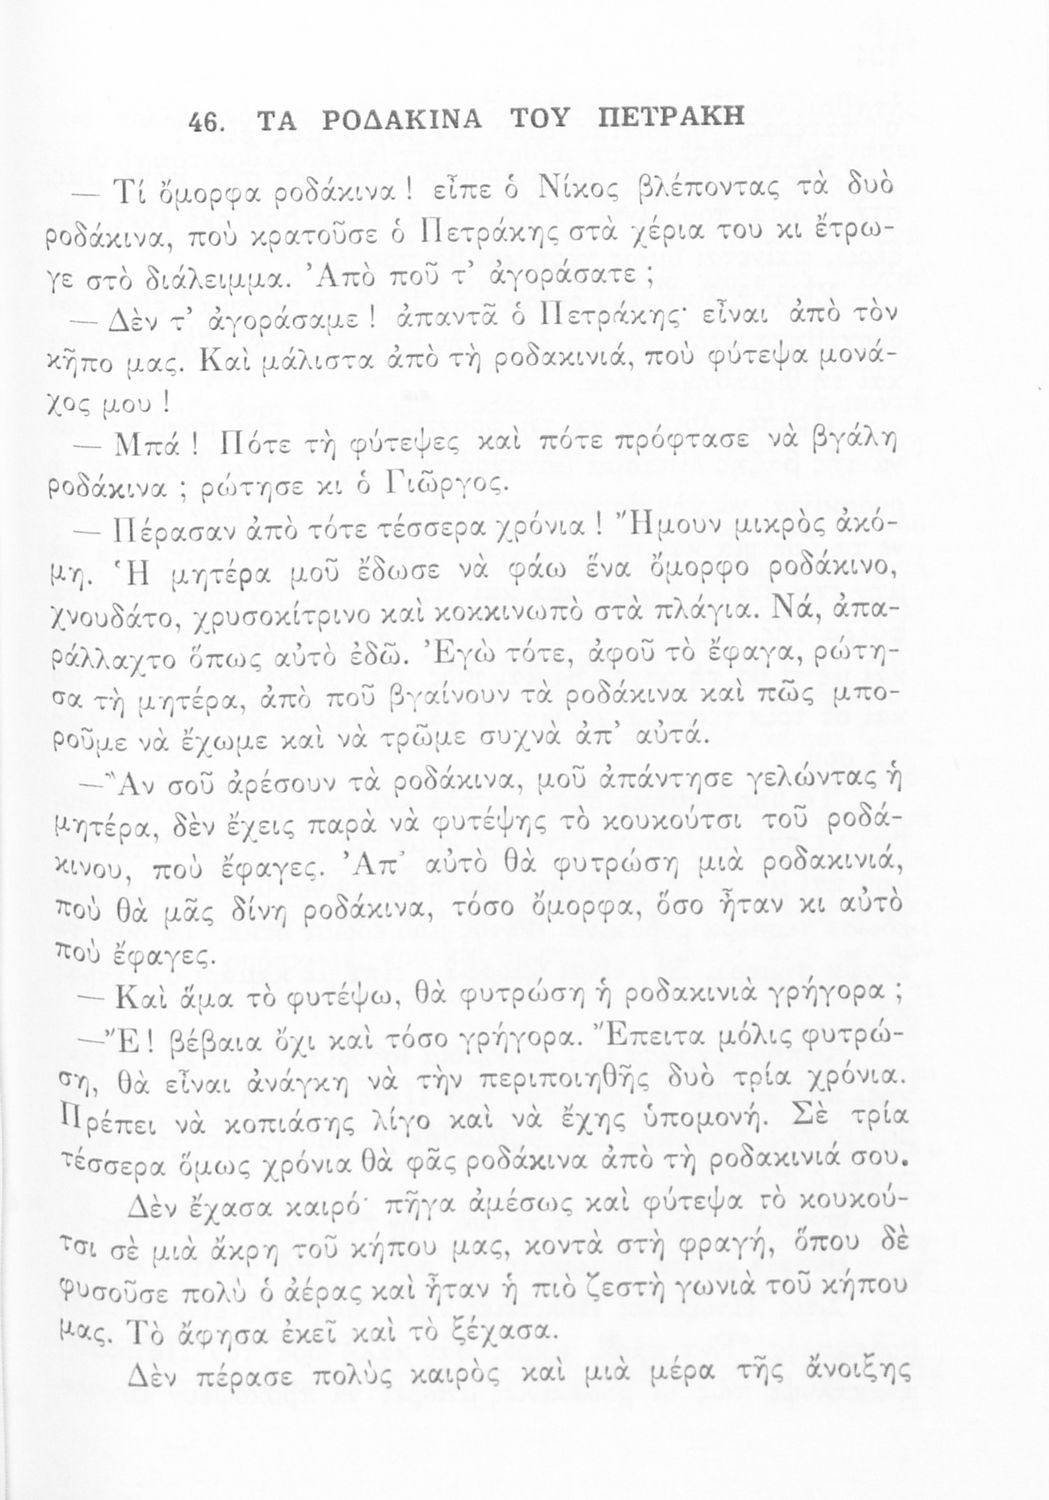 46. ΤΑ ΡΟΔΑΚΙΝΑ ΤΟΥ ΠΕΤΡΑΚΗ
— Τί ὄμορφα ροδάκινα ! εἶπε ὁ Νίκος βλέποντας τὰ δυὸ
ροδάκινα, ποὺ κρατοῦσε ὁ Πετράκης στὰ χέρια του κι ἔτρω-
γε στὸ διάλειμμα. Ἀπὸ ποῦ τ’ ἀγοράσατε ;
— Δὲν τ’ ἀγοράσαμε ! ἀπαντᾶ ὁ Πετράκης· εἶναι ἀπὸ τὸν
κῆπο μας. Καὶ μάλιστα ἀπὸ τὴ ροδακινιά, ποὺ φύτεψα μονά-
χος μου !
— Μπά ! Πότε τὴ φύτεψες καὶ πότε πρόφτασε νὰ βγάλη
ροδάκινα ; ρώτησε κι ὁ Γιῶργος.
— Πέρασαν ἀπὸ τότε τέσσερα χρόνια ! Ἤμουν μικρὸς ἀκό-
μη. Ἡ μητέρα μοῦ ἔδωσε νὰ φάω ἕνα ὄμορφο ροδάκινο,
χνουδάτο, χρυσοκίτρινο καὶ κοκκινωπὸ στὰ πλάγια. Νά, ἀπα-
ράλλαχτο ὅπως αὐτὸ ἐδῶ. Ἐγὼ τότε, ἀφοῦ τὸ ἔφαγα, ρώτη-
σα τὴ μητέρα, ἀπὸ ποῦ βγαίνουν τὰ ροδάκινα καὶ πῶς μπο-
ροῦμε νὰ ἔχωμε καὶ νὰ τρῶμε συχνὰ ἀπ’ αὐτά.
—Ἂν σοῦ ἀρέσουν τὰ ροδάκινα, μοῦ ἀπάντησε γελώντας ἡ
μητέρα, δὲν ἔχεις παρὰ νὰ φυτέψης τὸ κουκούτσι τοῦ ροδά-
κινου, ποὺ ἔφαγες. Ἀπ’ αὐτὸ θὰ φυτρώση μιὰ ροδακινιά,
ποὺ θὰ μᾶς δίνη ροδάκινα, τόσο ὄμορφα, ὅσο ἦταν κι αὐτὸ
ποὺ ἔφαγες.
— Καὶ ἅμα τὸ φυτέψω, θὰ φυτρώση ἡ ροδακινιὰ γρήγορα ;
—Ἔ ! βέβαια ὄχι καὶ τόσο γρήγορα. Ἔπειτα μόλις φυτρώ-
ση, θὰ εἶναι ἀνάγκη νὰ τὴν περιποιηθῆς δυὸ τρία χρόνια.
Πρέπει νὰ κοπιάσης λίγο καὶ νὰ ἔχης ὑπομονή. Σὲ τρία
τέσσερα ὅμως χρόνια θὰ φᾶς ροδάκινα ἀπὸ τὴ ροδακινιά σου.
Δὲν ἔχασα καιρό· πῆγα ἀμέσως καὶ φύτεψα τὸ κουκού-
τσι σὲ μιὰ ἄκρη τοῦ κήπου μας, κοντὰ στὴ φραγή, ὅπου δὲ
φυσοῦσε πολὺ ὁ ἀέρας καὶ ἦταν ἡ πιὸ ζεστὴ γωνιὰ τοῦ κήπου
μας. Τὸ ἄφησα ἐκεῖ καὶ τὸ ξέχασα.
Δὲν πέρασε πολὺς καιρὸς καὶ μιὰ μέρα τῆς ἄνοιξης